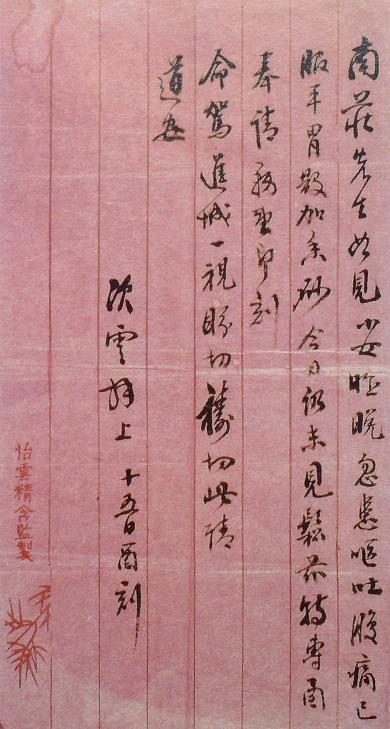 南莊先生如見小女昨晚忽患嘔吐腹痛已
服平胃散加香砂今日仍未見鬆茲特專函
奉請務望即刻
命駕進城一視盼切禱切此請
道安
次雲拜上 十五日酉刻
怡雲精舍監製